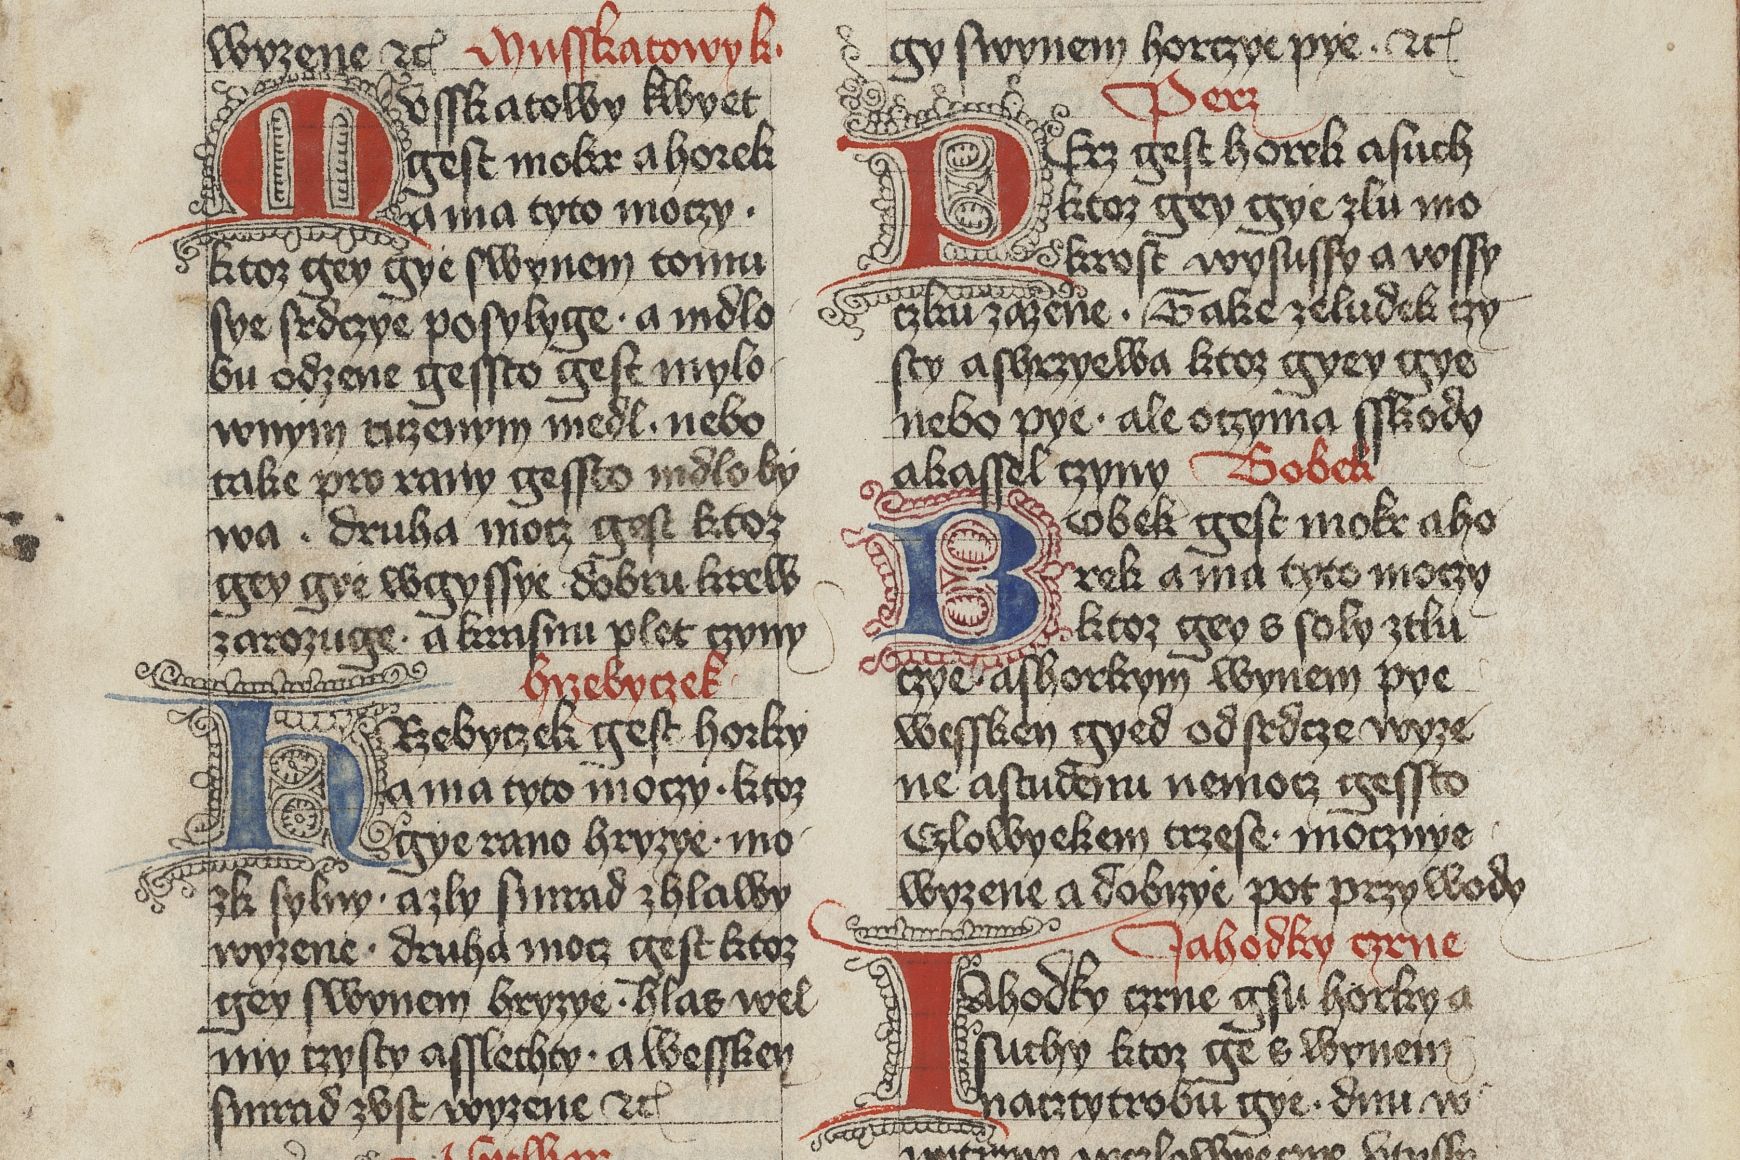 wyzene ꝛcͣ Musskatowy k.
Mvsskatowy kwyet
gest mokr a horek
a ma tyto moczy .
ktoz gey gye swynem tomu
sye srdczye posylyge . a mdlo
bu odzene gessto gest mylo
wnym tuzenym medl . nebo
take pro rany gessto mdlo by
wa . druha mocz gest ktoz
gey gye wgyssye dobru krew
zarozuge . a krasnu plet czyny
hrzebyczek
hRzebyczek gest horky
a ma tyto moczy . ktoz
gye rano hryzye . mo
zk sylny . a zly smrad z hlawy
wyzene . druha mocz gest ktoz
gey swynem hryzye . hlas wel
my czysty asslechty . a wessken
smrad zvst wyzene ꝛcͣ
gy swynem horczye pye . ꝛcͣ
Perz
PErz gest horek asuch
ktoz gey gye zlu mo
krost wysussy a wssy
czku zazene . Take zeludek czy
sty ashrzyewa ktoz gyey gye
nebo pye . ale oczyma sskody
akassel czyny Bobek
Bobek gest mokr aho
rek a ma tyto moczy
ktoz gey s soly ztlu
czye ashorkym wynem pye
wessken gyed od srdcze wyze
ne astudenu nemocz gessto
Czlowyekem trzese . mocznye
wyzene a dobrzye pot przywody
Jahodky czrne
IAhodky czrne gsu horky a
suchy ktoz ge s wynem
nacztytrobu gye . dnu w